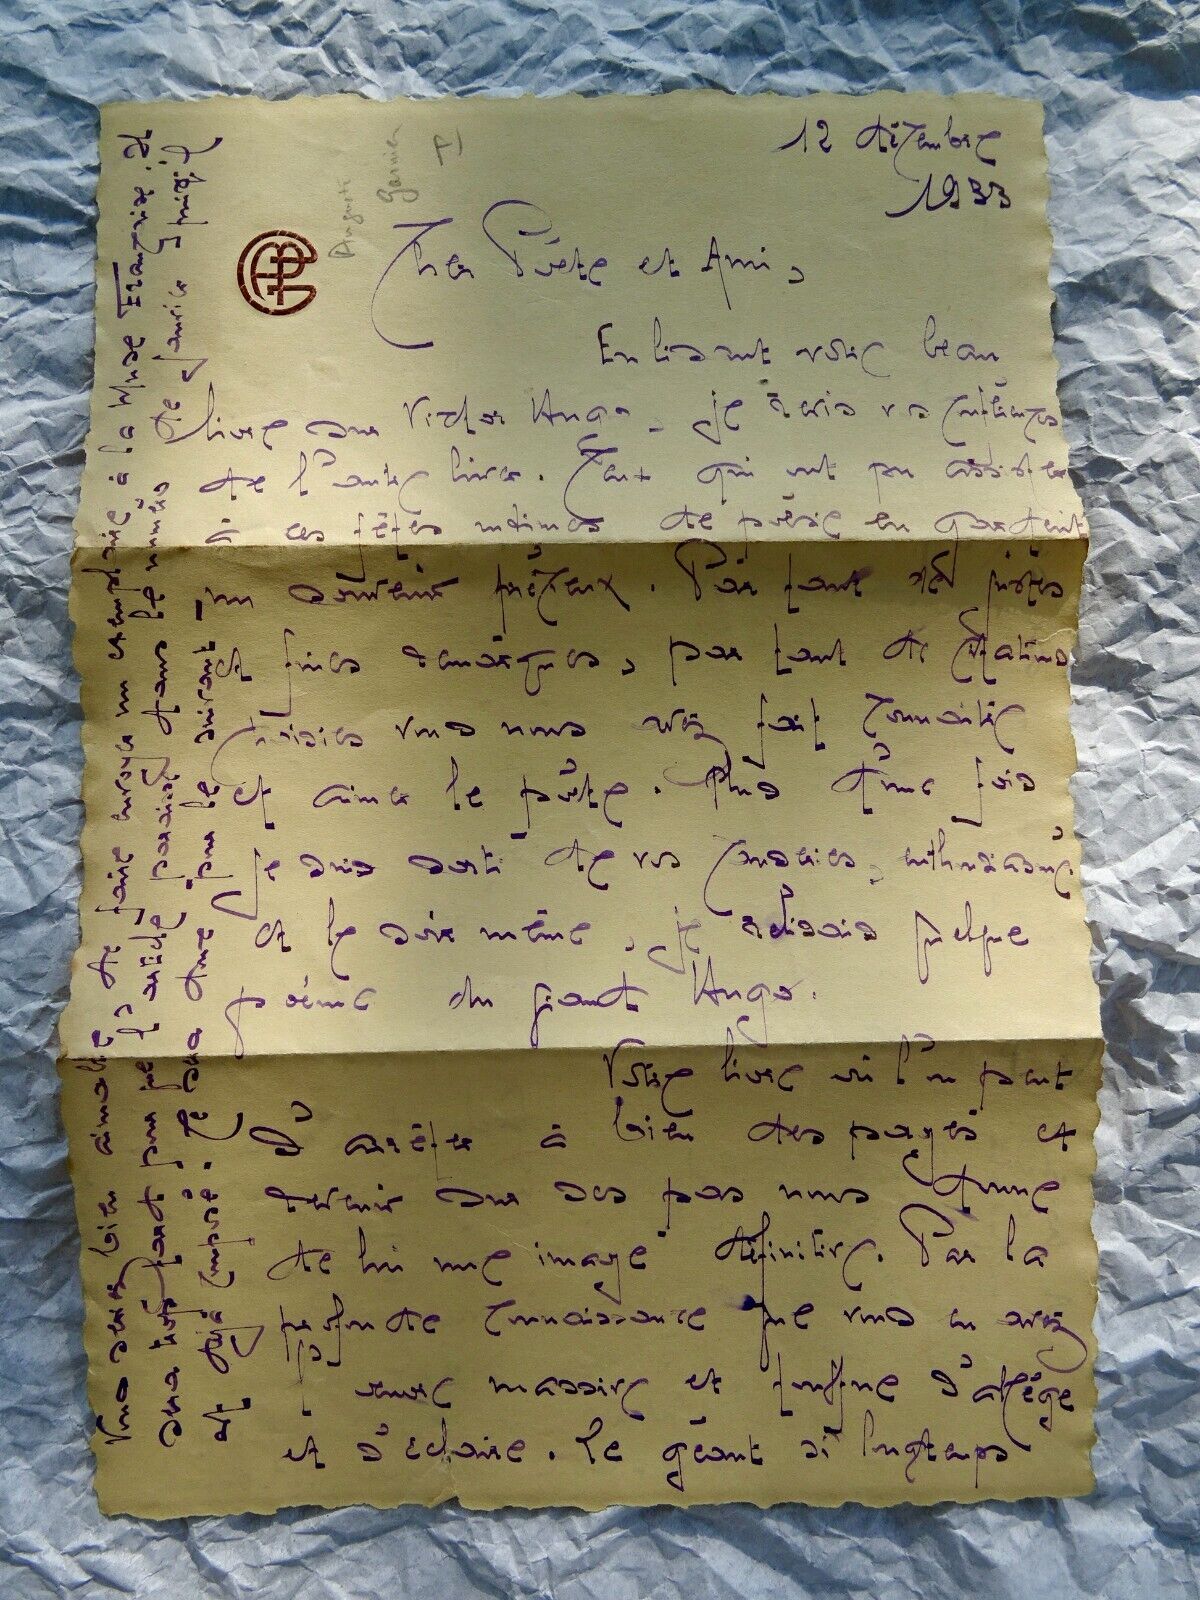 12 décembre
1933
Auguste
Garnier
Cher Poète et Ami,
En lisant votre beau
livre sur Victor Hugo, je revis vos conférences
de l'autre hiver. Ceux qui ont pu assister
à ces fêtes intimes de poésie en gardent
un souvenir précieux. Par tant de justes
et fines remarques, par tant de citations
choisies vous nous avez fait connaître
et aimer le poète. Plus d'une fois
je suis sorti de vos causeries, enthousiasmé
et le soir même, je relisais quelque
poème du géant Hugo.
Votre livre où l'on peut
s'arrêter à bien des pages et
revenir sur ses pas nous donne
de lui une image définitive. Par la
profonde connaissance que vous en avez
l'œuvre massive et touffue s'allège
et s'éclaire. Le géant si longtemps
Vous seriez bien aimable de faire envoyer un exemplaire à la Muse Française. Il
sera trop tard pour que l'article paraisse dans le numéro de janvier qui
est déjà composé. Ce sera donc pour le suivant